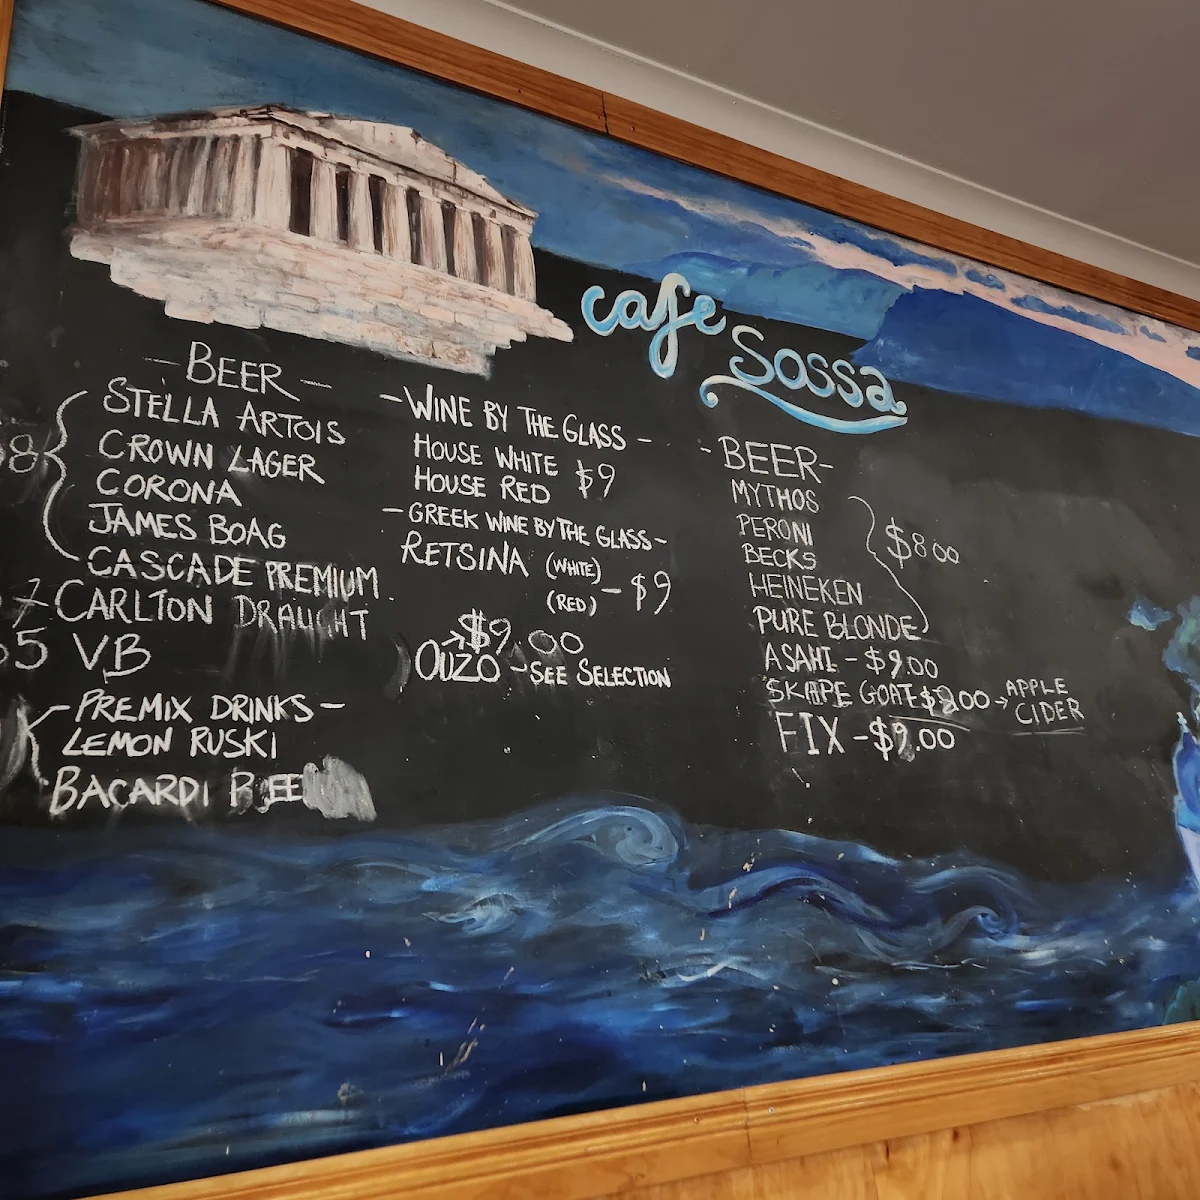 cafe
Sossa
- BEER -
STELLA ARTOIS
CROWN LAGER
CORONA
JAMES BOAG
CASCADE PREMIUM
8
CARLTON DRAUGHT
7
5 VB
- PREMIX DRINKS -
LEMON RUSKI
BACARDI
- WINE BY THE GLASS -
HOUSE WHITE
HOUSE RED
$9
- GREEK WINE BY THE GLASS -
RETSINA (WHITE)
(RED)
- $9
$9.00
OUZO - SEE SELECTION
- BEER -
MYTHOS
PERONI
BECKS
HEINEKEN
PURE BLONDE
$8 00
ASAHI - $9.00
GOAT $9.00 → APPLE
CIDER
FIX - $9.00